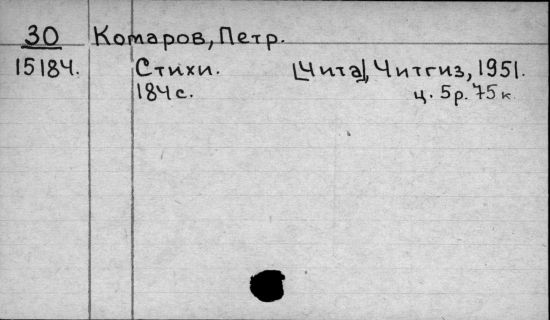 30 Комаров, Петр.
15184. Стихи. [Чита], Читгиз, 1951.
184 с. ц. 5 р. 75 к